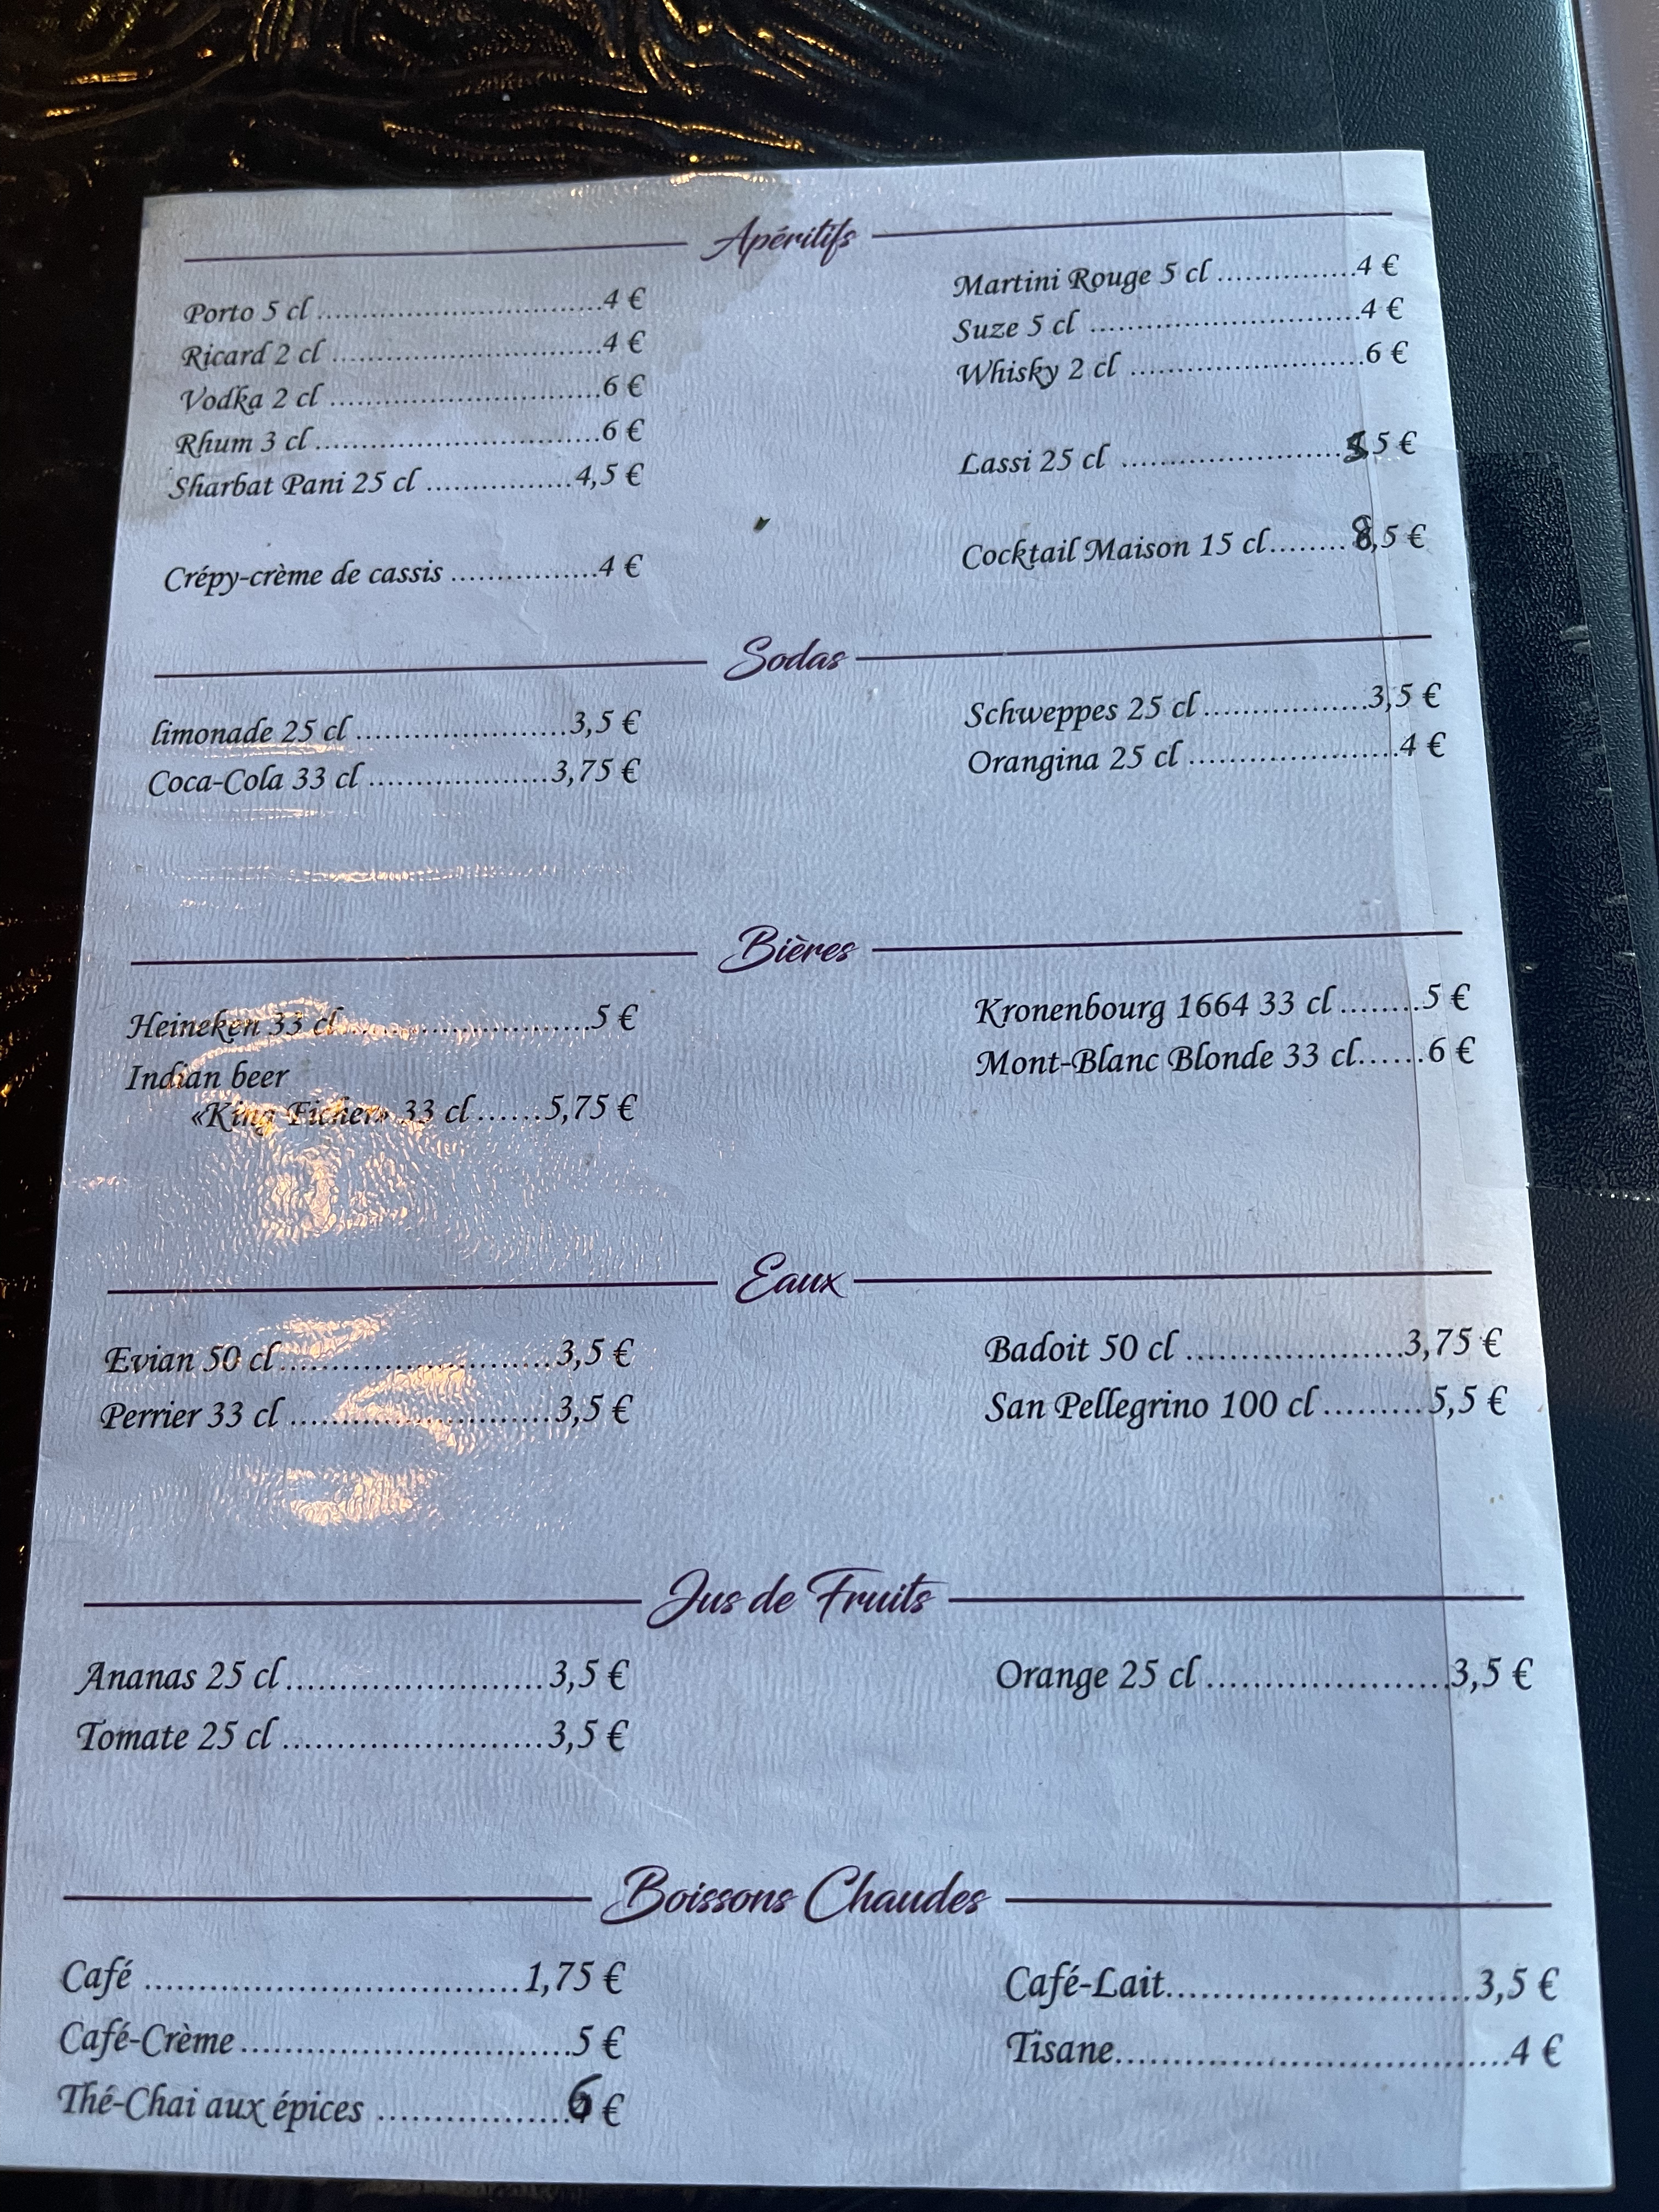 Apéritifs
Porto 5 cl ..............................4 €
Ricard 2 cl ............................4 €
Vodka 2 cl ............................6 €
Rhum 3 cl .............................6 €
Sharbat Pani 25 cl ...............4,5 €
Crépy-crème de cassis ...............4 €
Martini Rouge 5 cl ...............4 €
Suze 5 cl .............................4 €
Whisky 2 cl .........................6 €
Lassi 25 cl ........................5 €
Cocktail Maison 15 cl........8,5 €
Sodas
limonade 25 cl .......................3,5 €
Coca-Cola 33 cl ...................3,75 €
Schweppes 25 cl .................3,5 €
Orangina 25 cl ......................4 €
Bières
Heineken 33 cl..........................5 €
Indian beer
«King Ficher» 33 cl ......5,75 €
Kronenbourg 1664 33 cl ........5 €
Mont-Blanc Blonde 33 cl......6 €
Eaux
Evian 50 cl ............................3,5 €
Perrier 33 cl ...........................3,5 €
Badoit 50 cl .....................3,75 €
San Pellegrino 100 cl .........5,5 €
Jus de Fruits
Ananas 25 cl .........................3,5 €
Tomate 25 cl .........................3,5 €
Orange 25 cl .......................3,5 €
Boissons Chaudes
Café .....................................1,75 €
Café-Crème ................................5 €
Thé-Chai aux épices ..................6 €
Café-Lait.............................3,5 €
Tisane......................................4 €